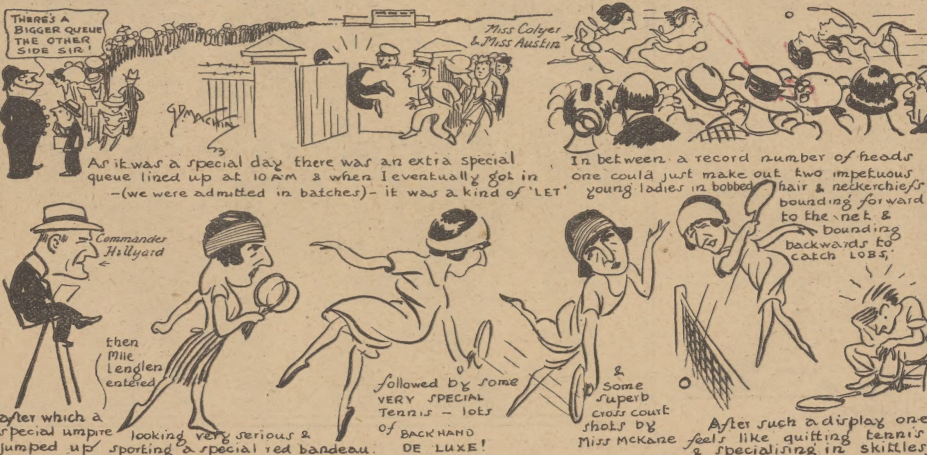 THERE'S A
BIGGER QUEUE
THE OTHER
SIDE SIR!
G.D. MACHIN
23
Miss Colyer
& Miss Austin
As it was a special day there was an extra special
queue lined up at 10 AM & when I eventually got in
-(we were admitted in batches)- it was a kind of 'LET'
In between a record number of heads
one could just make out two impetuous
young ladies in bobbed hair & neckerchiefs
bounding forward
to the net &
bounding
backwards to
catch LOBS,
Commander
Hillyard
after which a
special umpire
jumped up
then
Mlle
Lenglen
entered
looking very serious &
sporting a special red bandeau.
followed by some
VERY SPECIAL
Tennis - lots
of BACKHAND
DE LUXE!
&
Some
superb
cross court
shots by
Miss McKane
After such a display one
feels like quitting tennis
& specialising in skittles